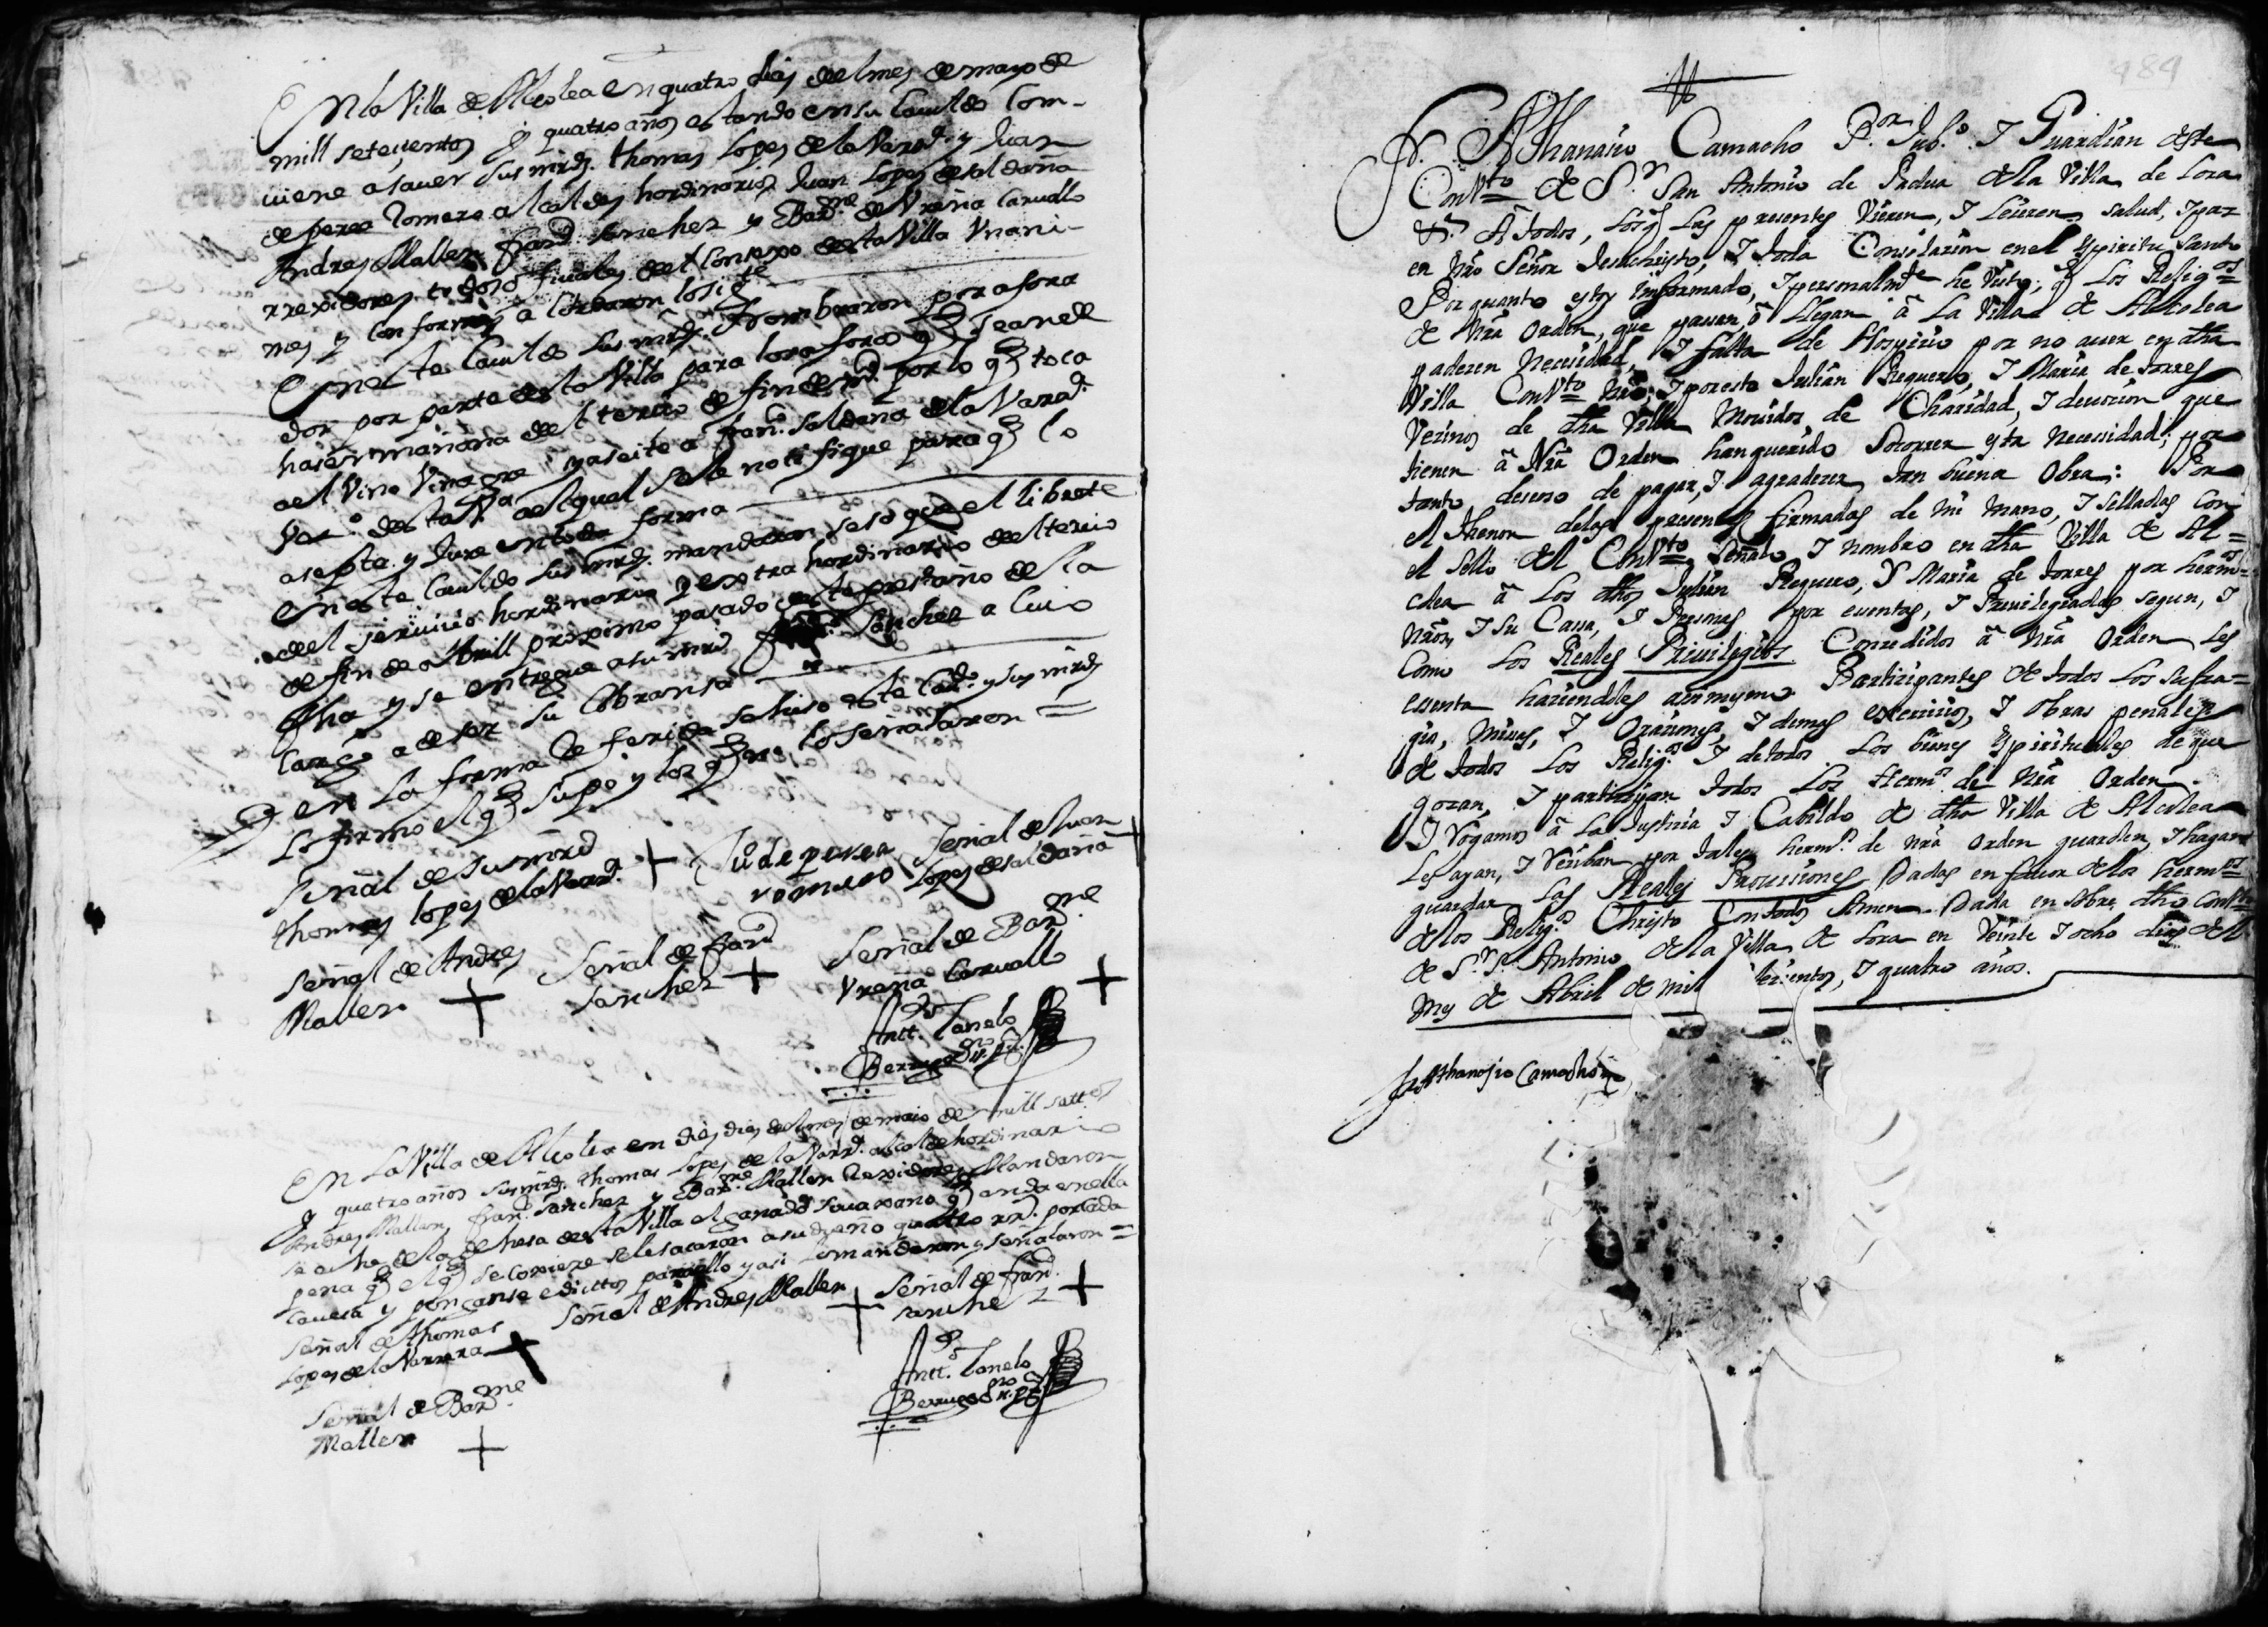 En la Villa de Alcolea en quatro dias del mes de mayo de
mill setecientos y quatro años estando en su Cauildo Com-
uiene a sauer sus mrds. thomas Lopes de la Varrª. y Juan
de perea Romero alcaldes hordinarios Juan Lopes de saldaña
Andres Mallen franco. sanchez y Barme. de Vreña Caruallo
rrexidores todos ofiuiales del Consexo desta Villa Vnani-
mes y Conformes acordaron lo sigte
En este Cauildo sus mrds. nombraron por afora
dor por parte desta Villa para los aforos q se an de
haser mañana del tercio de fin de por lo q toca
ael Vino Vinagre y aseite a franco. saldaña de la Varaª.
Veco. desta Vª. ael qual se le notifique para q lo
asepte y Jure en toda forma
En este Cauildo sus mrds. mandaron se saque el librete
del seruicio hordinario y extra hordinario del tercio
de fin de Abrill proximo pasado deste prest. año de la
fha y se entregue a su mrd sanchez a Cuio
Cargo a de ser su Cobransa
y en la forma Referida se hiso este Cavdo. y sus mrds
Lo firmo el q supo y los q no lo señalaron =
señal de su mrd
thomas lopes de la Varrª. + Ju de perea
romero
Señal de Juan
Lopes de saldaña +
señal de Andres
Mallen +
Señal de franco
sanchez +
Señal de Barme
Vreña Caruallo +
Antt. Canelo
Berrugo
En La Villa de Alcolea en dies dias del mes de maio de mill settos
y quatro años sus mrds. thomas Lopes de la Varrª. alcalde hordinario
Andres Mallen, franco. sanchez y Barme. Mallen Rexidores Mandaron
se eche de la dehesa desta Villa el ganado q anda en ella
pena q el q se Coxiere se le sacaron a su dueño quatro rrs. por cada
Caueza y ponganse edictos para ello y asi lo mandaron y señalaron =
señal de thomas
Lopes de la Varrera +
señal de Andres Mallen +
señal de franco.
sanchez +
Señal de Barme
Mallen +
Antt. Canelo
Berrugo
484
Fr. Athanasio Camacho Por. Jubo. I Guardian deste
Convto de Sr. San Antonio de Padua de la Villa de Lora
&. A todos, los q las presentes Vieren, I Leieren, salud, I paz
en Nro Señor Jesuchristo, I toda Consolazion en el Espiritu Santo
Por quanto estoy informado, I personalmte he Visto, q Los Religos
de Nra Orden, que passan, o llegan â La Villa de Alcolea
padezen Necessidad, I falta de Hospicio por no auer en dha
Villa Convto Nro; I por esto Julian Requero, I Maria de Torres
Vezinos de dha Villa Mouidos de Charidad, I deuozion que
tienen â Nra Orden han querido Socorrer esta necessidad; por
tanto deseoso de pagar, I agradezer tan buena Obra: Por
el Thenor de las presentes firmadas de mi mano, I Selladas con
el Sello del Convto Señalo, I nombro en dha Villa de Al=
colea â Los dhos Julian Requero, Y Maria de Torres por hermos
Nros, I su Cassa, I Presonas por exentos, I Privilegiados segun, I
Como Los Reales Privilegios Conzedidos â Nra Orden Les
essenta haziendoles assimismo Participantes de todos Los Sufra=
gios, Missas, I Oraziones, I demas exerzicios, I obras penales
de todos Los Religs. I de todos Los bienes Espirituales de que
gozan, I participan todos Los Hermos de Nra Orden.
I Rogamos â La Justicia I Cabildo de dha Villa de Alcolea
Les ayan, I Reciban por tales hermos. de nra Orden guarden, I hagan
guardar Las Reales Prouissiones Dadas en fauor de los hermos
de los Religos. Christo Con todos Amen. Dada en Nro dho Convto
de Sr. S. Antonio de la Villa de Lora en Veinte I ocho dias del
mes de Abril de mil setecientos, I quatro años.
fr Athanasio Camacho